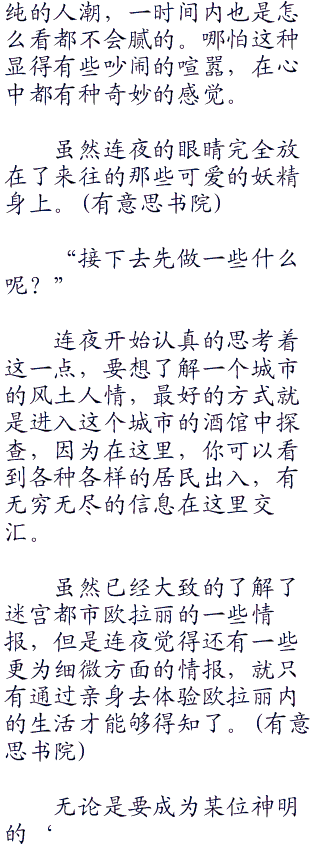 纯的人潮，一时间内也是怎
么看都不会腻的。哪怕这种
显得有些吵闹的喧嚣，在心
中都有种奇妙的感觉。
虽然连夜的眼睛完全放
在了来往的那些可爱的妖精
身上。(有意思书院)
“接下去先做一些什么
呢？”
连夜开始认真的思考着
这一点，要想了解一个城市
的风土人情，最好的方式就
是进入这个城市的酒馆中探
查，因为在这里，你可以看
到各种各样的居民出入，有
无穷无尽的信息在这里交
汇。
虽然已经大致的了解了
迷宫都市欧拉丽的一些情
报，但是连夜觉得还有一些
更为细微方面的情报，就只
有通过亲身去体验欧拉丽内
的生活才能够得知了。(有意
思书院)
无论是要成为某位神明
的‘